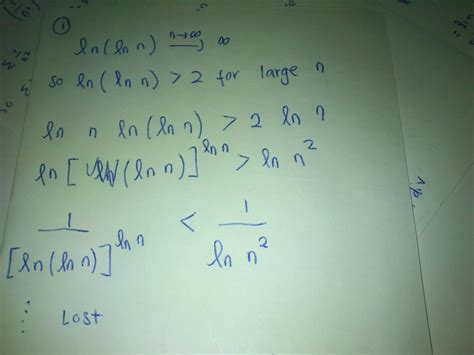 ①
ln(ln n) n→∞ → ∞
so ln(ln n) > 2 for large n
ln n ln(ln n) > 2 ln n
ln[(ln n)]^ln n > ln n^2
1/[ln(ln n)]^ln n < 1/ln n^2
⋮ Lost